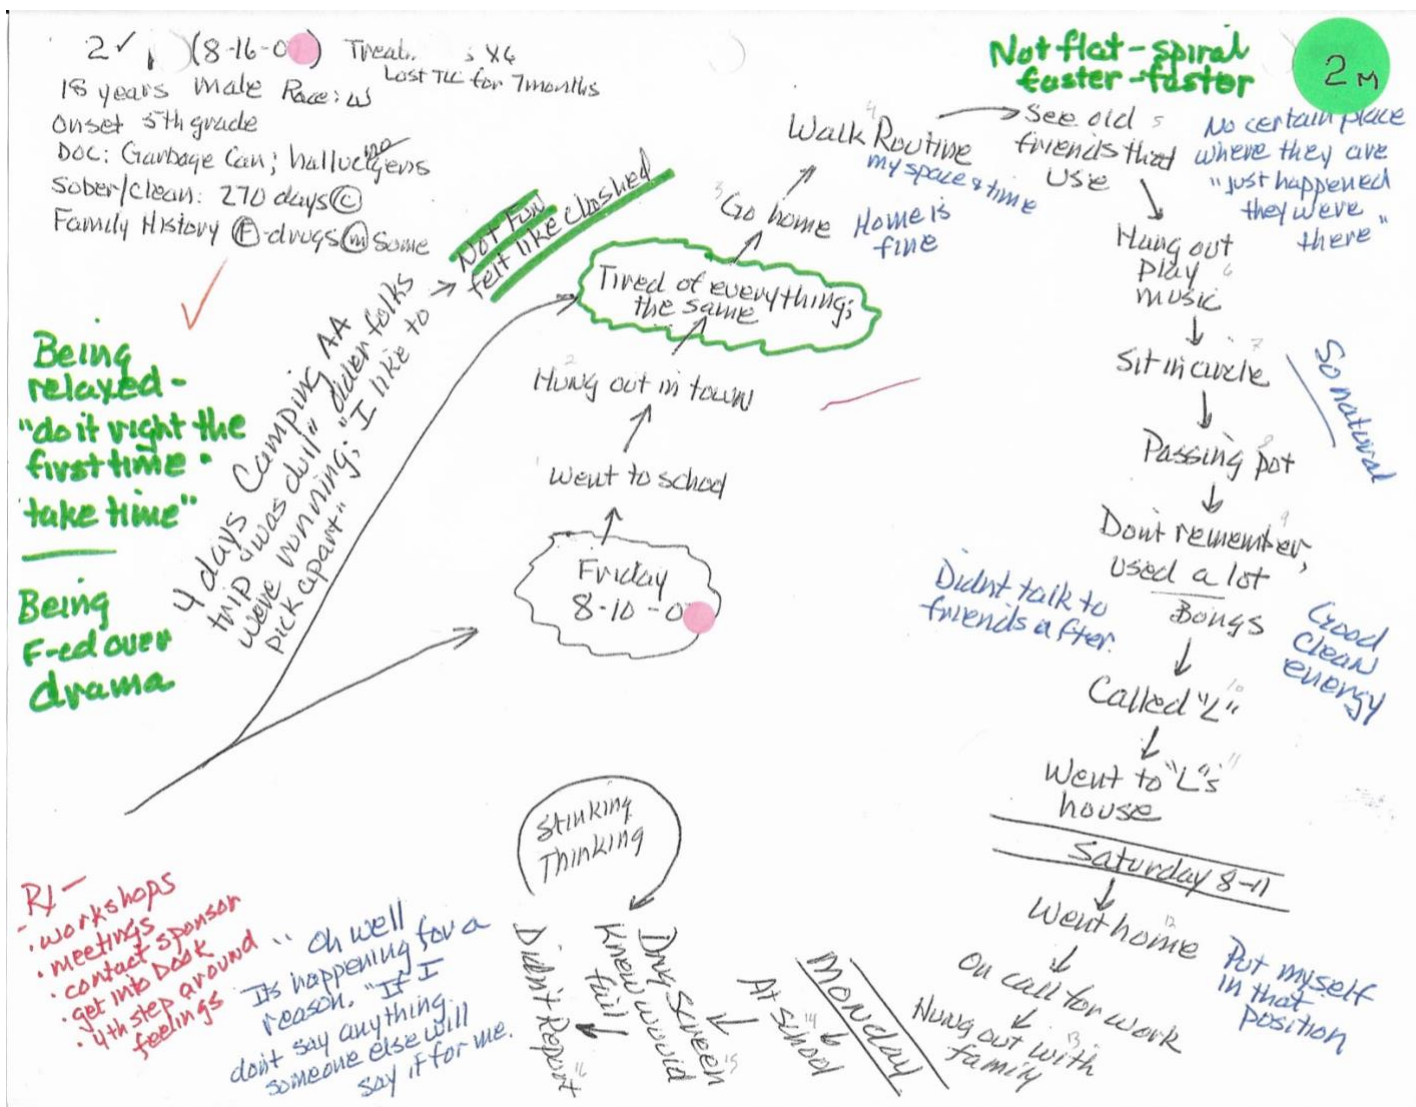 2✓ (8-16-0 ) Treat. s x4
Lost TLC for 7months
18 years male Race: W
Onset 5th grade
DOC: Garbage Can; hallucinogens
Sober/Clean: 270 days ©
Family History Ⓕ-drugs ⓜ some
Not flat-spiral
faster-faster
2M
Being
relaxed-
"do it right the
first time.
take time"
Being
F-ed over
drama
4 days Camping AA
trip "was dull" older folks
were running; "I like to
pick apart"
Not Fun
felt like clashed
Friday
8-10-0
1
Went to school
2
Hung out in town
Tired of everything;
the same
3
Go home
Home is
fine
4
Walk Routine
my space & time
See old 5
friends that
use
No certain place
where they are
"just happened
they were
there"
Hung out
play 6
music
Sit in circle 7
So natural
8
Passing pot
9
Don't remember,
used a lot
Bongs
Good
Clean
energy
Didnt talk to
friends after.
10
Called "L"
11
Went to "L"s
house
Saturday 8-11
12
Went home
Put myself
in that
position
On call for work
Hung out with 13
family
Monday
At school 14
Drug Screen 15
Knew would
fail
Didn't Report 16
Stinking
Thinking
"Oh well
Its happening for a
reason. "If I
dont say anything
someone else will
say it for me.
Rx-
· workshops
· meetings
· contact sponsor
· get into book
· 4th step around
feelings